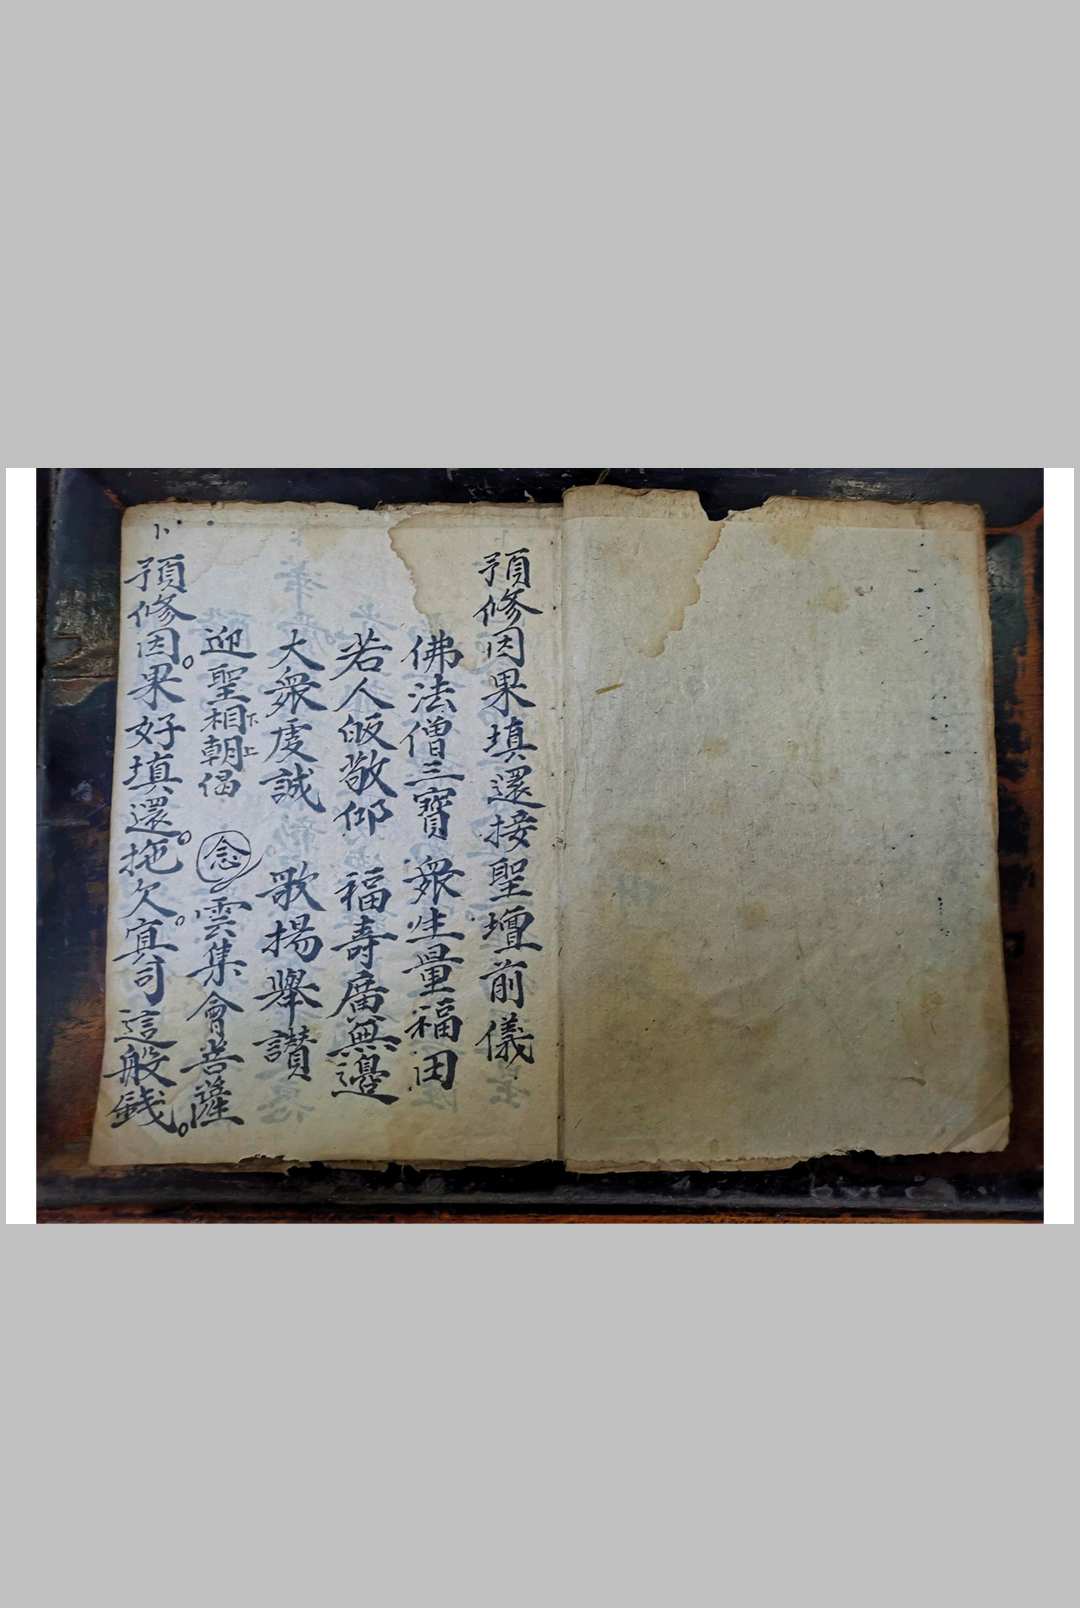 預修因果填還接聖壇前儀
佛法僧三寶 衆生量福田
若人皈敬仰 福壽廣無邊
大衆虔誠 歌揚舉讃
迎聖相朝偈 念 雲集會菩薩
下上
預修因果好填還拖欠寘司這般錢